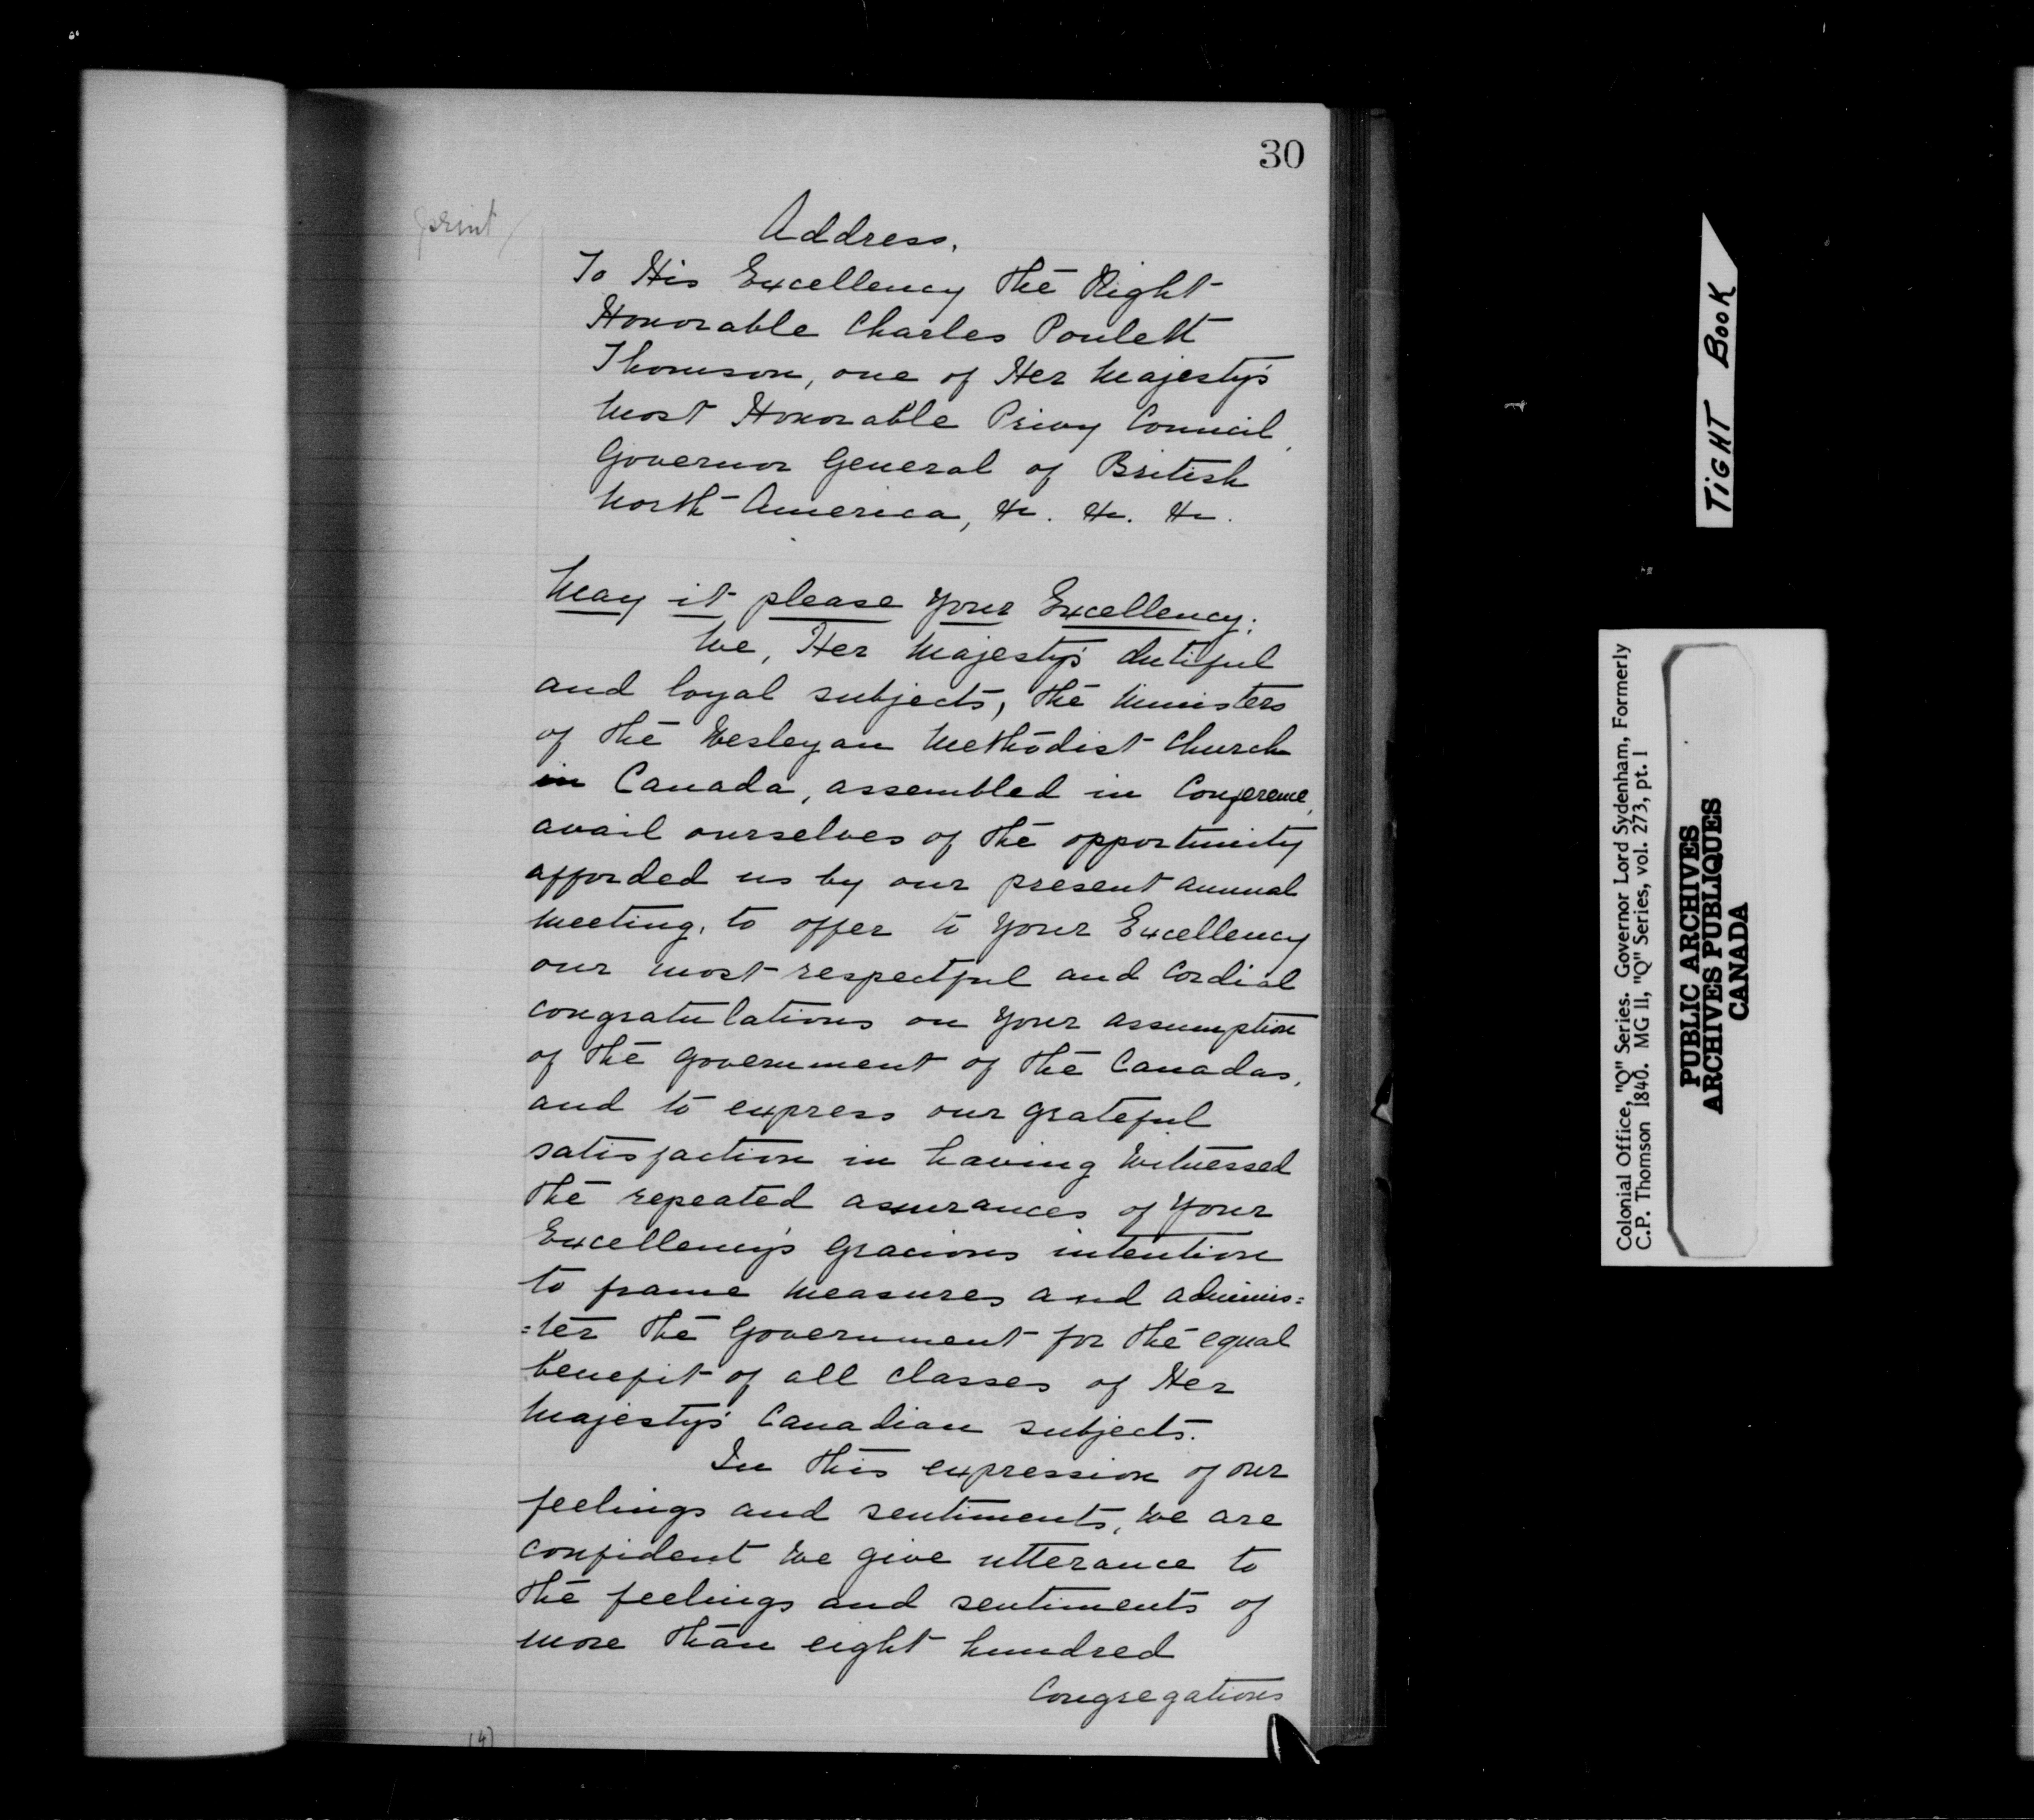 30
print/
Address.
To His Excellency the Right
Honorable Charles Poulett
Thomson, one of Her Majesty's
Most Honorable Privy Council,
Governor General of British
North America, &c. &c. &c.
May it please Your Excellency:
We, Her Majesty's dutiful
and loyal subjects, the Ministers
of the Wesleyan Methodist Church
in Canada, assembled in Conference,
avail ourselves of the opportunity
afforded us by our present annual
Meeting, to offer to Your Excellency
our most respectful and cordial
congratulations on Your assumption
of the Government of the Canadas,
and to express our grateful
satisfaction in having witnessed
the repeated assurances of Your
Excellency's gracious intention
to frame measures and adminis=
=ter the Government for the equal
benefit of all classes of Her
Majesty's Canadian subjects.
In this expression of our
feelings and sentiments, we are
confident we give utterance to
the feelings and sentiments of
more than eight hundred
Congregations
(4)
TIGHT BOOK
Colonial Office, "Q" Series. Governor Lord Sydenham, Formerly
C.P. Thomson 1840. MG 11, "Q" Series, vol. 273, pt. 1
PUBLIC ARCHIVES
ARCHIVES PUBLIQUES
CANADA